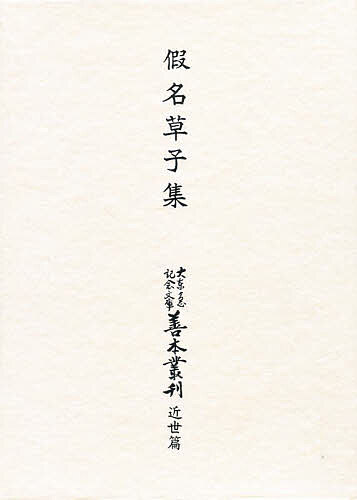 假名草子集
大东急記念文庫
善本叢刊
近世篇